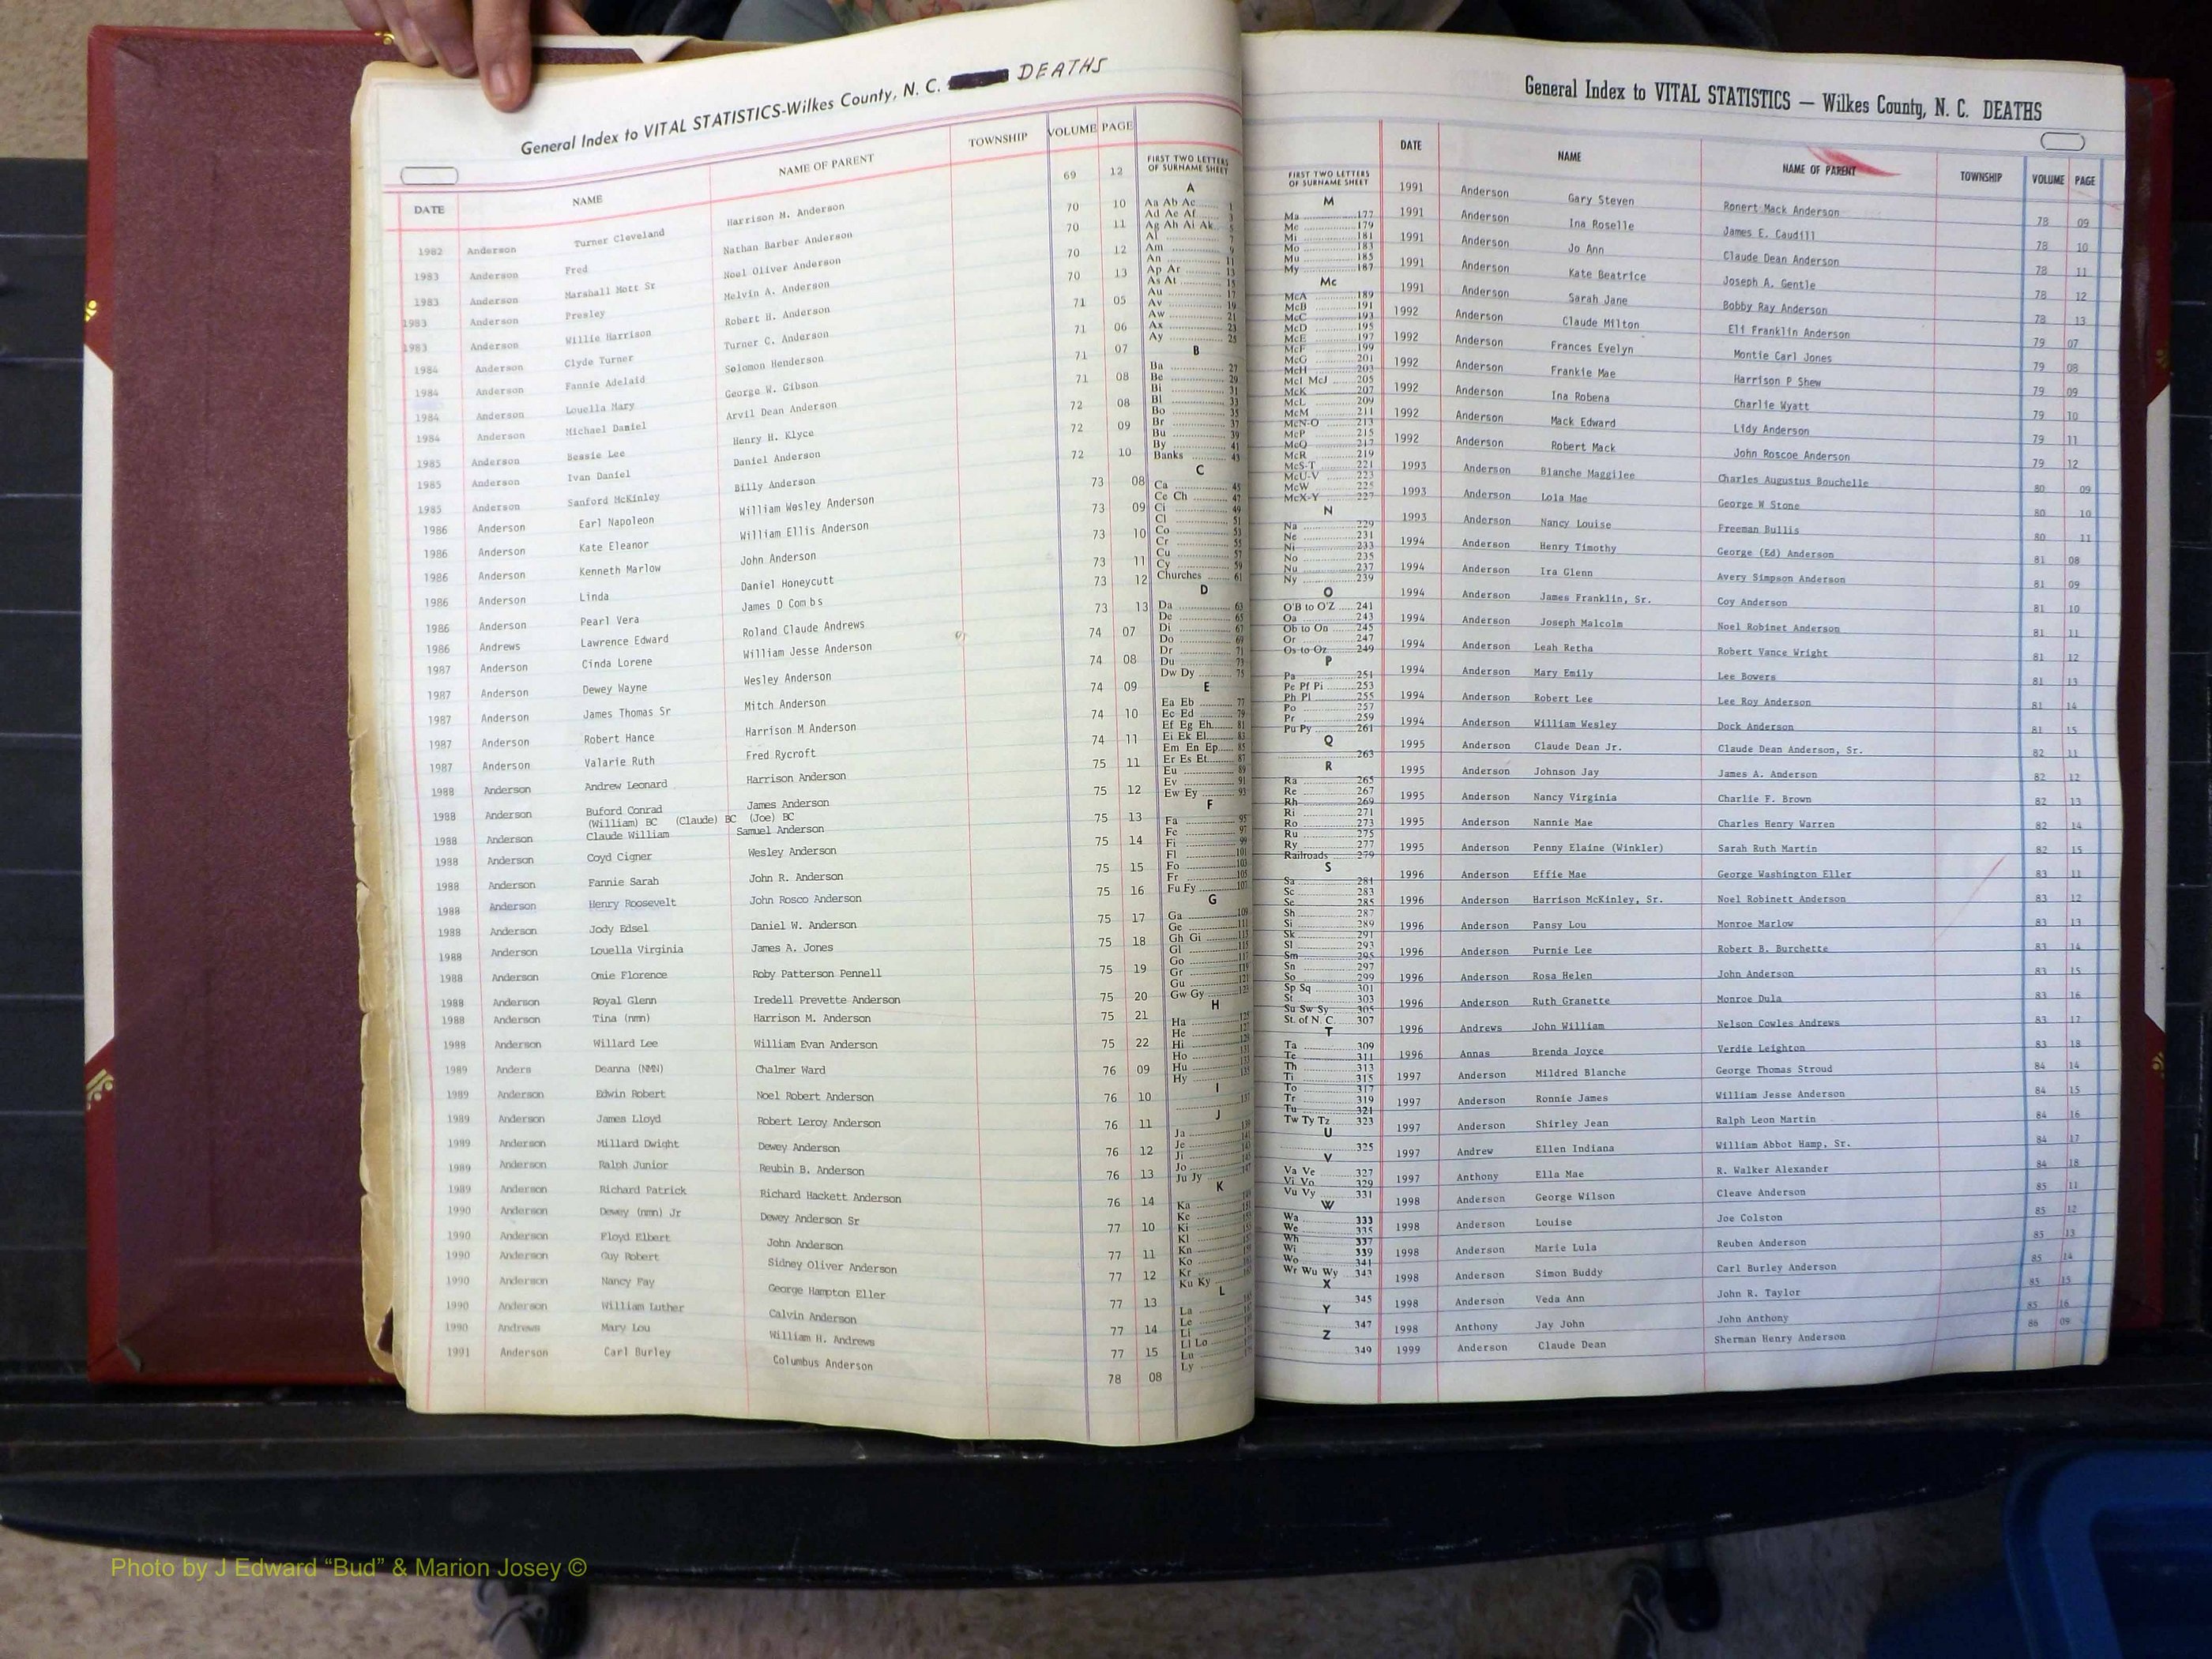 General Index to VITAL STATISTICS-Wilkes County, N. C. DEATHS
DATE NAME NAME OF PARENT TOWNSHIP VOLUME PAGE
1982 Anderson Turner Cleveland Harrison M. Anderson 69 12
1983 Anderson Fred Nathan Barber Anderson 70 10
1983 Anderson Marshall Mott Sr Noel Oliver Anderson 70 11
1983 Anderson Presley Melvin A. Anderson 70 12
1983 Anderson Willie Harrison Robert H. Anderson 70 13
1984 Anderson Clyde Turner Turner C. Anderson 71 05
1984 Anderson Fannie Adelaid Solomon Henderson 71 06
1984 Anderson Louella Mary George W. Gibson 71 07
1984 Anderson Michael Daniel Arvil Dean Anderson 71 08
1985 Anderson Bessie Lee Henry H. Klyce 72 08
1985 Anderson Ivan Daniel Daniel Anderson 72 09
1985 Anderson Sanford McKinley Billy Anderson 72 10
1986 Anderson Earl Napoleon William Wesley Anderson 73 08
1986 Anderson Kate Eleanor William Ellis Anderson 73 09
1986 Anderson Kenneth Marlow John Anderson 73 10
1986 Anderson Linda Daniel Honeycutt 73 11
1986 Anderson Pearl Vera James D Combs 73 12
1986 Andrews Lawrence Edward Roland Claude Andrews 73 13
1987 Anderson Cinda Lorene William Jesse Anderson 74 07
1987 Anderson Dewey Wayne Wesley Anderson 74 08
1987 Anderson James Thomas Sr Mitch Anderson 74 09
1987 Anderson Robert Hance Harrison M Anderson 74 10
1987 Anderson Valarie Ruth Fred Rycroft 74 11
1988 Anderson Andrew Leonard Harrison Anderson 75 11
1988 Anderson Buford Conrad James Anderson 75 12
(William) BC (Claude) BC (Joe) BC
1988 Anderson Claude William Samuel Anderson 75 13
1988 Anderson Coyd Cigner Wesley Anderson 75 14
1988 Anderson Fannie Sarah John R. Anderson 75 15
1988 Anderson Henry Roosevelt John Rosco Anderson 75 16
1988 Anderson Jody Edsel Daniel W. Anderson 75 17
1988 Anderson Louella Virginia James A. Jones 75 18
1988 Anderson Omie Florence Roby Patterson Pennell 75 19
1988 Anderson Royal Glenn Iredell Prevette Anderson 75 20
1988 Anderson Tina (nmn) Harrison M. Anderson 75 21
1988 Anderson Willard Lee William Evan Anderson 75 22
1989 Anders Deanna (NMN) Chalmer Ward 76 09
1989 Anderson Edwin Robert Noel Robert Anderson 76 10
1989 Anderson James Lloyd Robert Leroy Anderson 76 11
1989 Anderson Millard Dwight Dewey Anderson 76 12
1989 Anderson Ralph Junior Reubin B. Anderson 76 13
1989 Anderson Richard Patrick Richard Hackett Anderson 76 14
1990 Anderson Dewey (nmn) Jr Dewey Anderson Sr 77 10
1990 Anderson Floyd Elbert John Anderson 77 11
1990 Anderson Guy Robert Sidney Oliver Anderson 77 12
1990 Anderson Nancy Fay George Hampton Eller 77 13
1990 Anderson William Luther Calvin Anderson 77 14
1990 Andrews Mary Lou William H. Andrews 77 15
1991 Anderson Carl Burley Columbus Anderson 78 08
FIRST TWO LETTERS
OF SURNAME SHEET
A
Aa Ab Ac 1
Ad Ae Af 3
Ag Ah Ai Ak 5
Al 7
Am 9
An 11
Ap Ar 13
As At 15
Au 17
Av 19
Aw 21
Ax 23
Ay 25
B
Ba 27
Be 29
Bi 31
Bl 33
Bo 35
Br 37
Bu 39
By 41
Banks 43
C
Ca 45
Ce Ch 47
Ci 49
Cl 51
Co 53
Cr 55
Cu 57
Cy 59
Churches 61
D
Da 63
De 65
Di 67
Do 69
Dr 71
Du 73
Dw Dy 75
E
Ea Eb 77
Ec Ed 79
Ef Eg Eh 81
Ei Ek El 83
Em En Ep 85
Er Es Et 87
Eu 89
Ev 91
Ew Ey 93
F
Fa 95
Fe 97
Fi 99
Fl 101
Fo 103
Fr 105
Fu Fy 107
G
Ga 109
Ge 111
Gh Gi 113
Gl 115
Go
Gr 119
Gu 121
Gw Gy 123
H
Ha 125
He 127
Hi 129
Ho 131
Hu 133
Hy 135
I
137
J
Ja
Je
Ji
Jo
Ju Jy
K
Ka
Ke
Ki
Kl
Kn
Ko
Kr
Ku Ky
L
La
Le
Li
Ll Lo
Lu
Ly
General Index to VITAL STATISTICS — Wilkes County, N. C. DEATHS
FIRST TWO LETTERS
OF SURNAME SHEET
M
Ma 177
Me 179
Mi 181
Mo 183
Mu 185
My 187
Mc
McA 189
McB 191
McC 193
McD 195
McE 197
McF 199
McG 201
McH 203
McI McJ 205
McK 207
McL 209
McM 211
McN-O 213
McP 215
McQ 217
McR 219
McS-T 221
McU-V 223
McW 225
McX-Y 227
N
Na 229
Ne 231
Ni 233
No 235
Nu 237
Ny 239
O
O'B to O'Z 241
Oa 243
Ob to On 245
Or 247
Os to Oz 249
P
Pa 251
Pe Pf Pi 253
Ph Pl 255
Po 257
Pr 259
Pu Py 261
Q
263
R
Ra 265
Re 267
Rh 269
Ri 271
Ro 273
Ru 275
Ry 277
Railroads 279
S
Sa 281
Sc 283
Se 285
Sh 287
Si 289
Sk 291
Sl 293
Sm 295
Sn 297
So 299
Sp Sq 301
St 303
Su Sw Sy 305
St. of N. C. 307
T
Ta 309
Te 311
Th 313
Ti 315
To 317
Tr 319
Tu 321
Tw Ty Tz 323
U
325
V
Va Ve 327
Vi Vo 329
Vu Vy 331
W
Wa 333
We 335
Wh 337
Wi 339
Wo 341
Wr Wu Wy 343
X
345
Y
347
Z
349
DATE NAME NAME OF PARENT TOWNSHIP VOLUME PAGE
1991 Anderson Gary Steven Ronert Mack Anderson 78 09
1991 Anderson Ina Roselle James E. Caudill 78 10
1991 Anderson Jo Ann Claude Dean Anderson 78 11
1991 Anderson Kate Beatrice Joseph A. Gentle 78 12
1991 Anderson Sarah Jane Bobby Ray Anderson 78 13
1992 Anderson Claude Milton Eli Franklin Anderson 79 07
1992 Anderson Frances Evelyn Montie Carl Jones 79 08
1992 Anderson Frankie Mae Harrison P Shew 79 09
1992 Anderson Ina Robena Charlie Wyatt 79 10
1992 Anderson Mack Edward Lidy Anderson 79 11
1992 Anderson Robert Mack John Roscoe Anderson 79 12
1993 Anderson Blanche Maggilee Charles Augustus Bouchelle 80 09
1993 Anderson Lola Mae George W Stone 80 10
1993 Anderson Nancy Louise Freeman Bullis 80 11
1994 Anderson Henry Timothy George (Ed) Anderson 81 08
1994 Anderson Ira Glenn Avery Simpson Anderson 81 09
1994 Anderson James Franklin, Sr. Coy Anderson 81 10
1994 Anderson Joseph Malcolm Noel Robinet Anderson 81 11
1994 Anderson Leah Retha Robert Vance Wright 81 12
1994 Anderson Mary Emily Lee Bowers 81 13
1994 Anderson Robert Lee Lee Roy Anderson 81 14
1994 Anderson William Wesley Dock Anderson 81 15
1995 Anderson Claude Dean Jr. Claude Dean Anderson, Sr. 82 11
1995 Anderson Johnson Jay James A. Anderson 82 12
1995 Anderson Nancy Virginia Charlie F. Brown 82 13
1995 Anderson Nannie Mae Charles Henry Warren 82 14
1995 Anderson Penny Elaine (Winkler) Sarah Ruth Martin 82 15
1996 Anderson Effie Mae George Washington Eller 83 11
1996 Anderson Harrison McKinley, Sr. Noel Robinett Anderson 83 12
1996 Anderson Pansy Lou Monroe Marlow 83 13
1996 Anderson Purnie Lee Robert B. Burchette 83 14
1996 Anderson Rosa Helen John Anderson 83 15
1996 Anderson Ruth Granette Monroe Dula 83 16
1996 Andrews John William Nelson Cowles Andrews 83 17
1996 Annas Brenda Joyce Verdie Leighton 83 18
1997 Anderson Mildred Blanche George Thomas Stroud 84 14
1997 Anderson Ronnie James William Jesse Anderson 84 15
1997 Anderson Shirley Jean Ralph Leon Martin 84 16
1997 Andrew Ellen Indiana William Abbot Hamp, Sr. 84 17
1997 Anthony Ella Mae R. Walker Alexander 84 18
1998 Anderson George Wilson Cleave Anderson 85 11
1998 Anderson Louise Joe Colston 85 12
1998 Anderson Marie Lula Reuben Anderson 85 13
1998 Anderson Simon Buddy Carl Burley Anderson 85 14
1998 Anderson Veda Ann John R. Taylor 85 15
1998 Anthony Jay John John Anthony 85 16
1999 Anderson Claude Dean Sherman Henry Anderson 86 09
Photo by J Edward “Bud” & Marion Josey ©